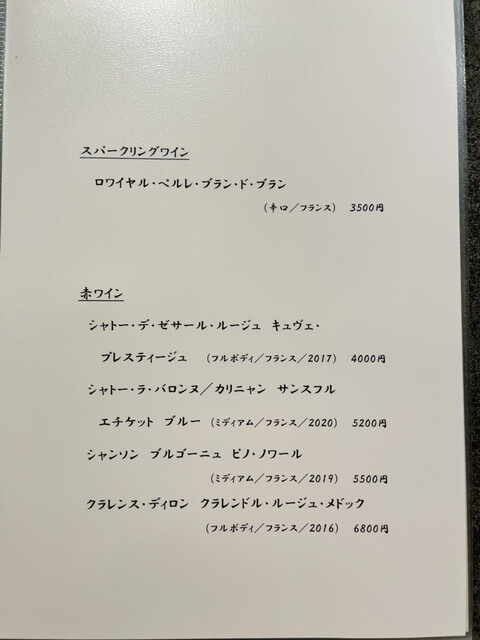 スパークリングワイン
ロワイヤル・ペルレ・ブラン・ド・ブラン
(辛口/フランス) 3500円
赤ワイン
シャトー・デ・ゼサール・ルージュ キュヴェ・
プレスティージュ (フルボディ/フランス/2017) 4000円
シャトー・ラ・バロンヌ/カリニャン サンスフル
エチケット ブルー (ミディアム/フランス/2020) 5200円
シャンソン ブルゴーニュ ピノ・ノワール
(ミディアム/フランス/2019) 5500円
クラレンス・ディロン クラレンドル・ルージュ・メドック
(フルボディ/フランス/2016) 6800円